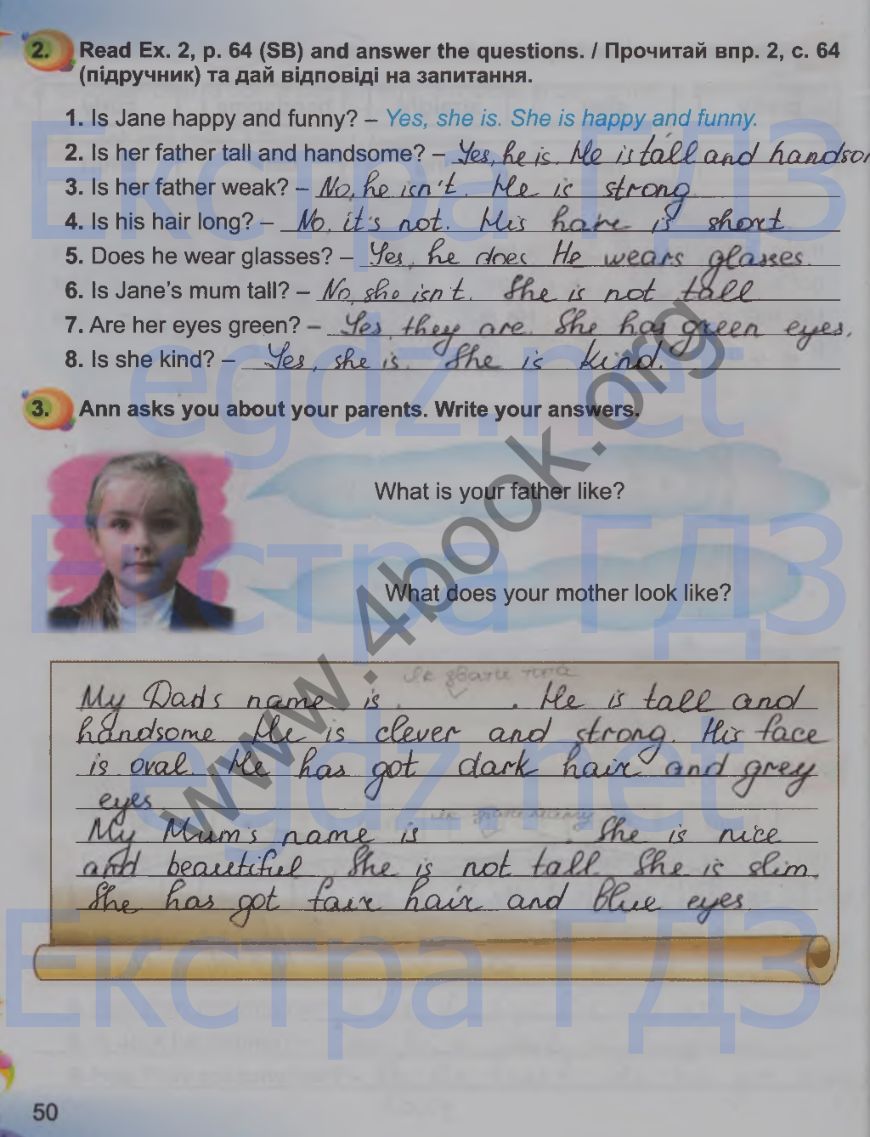 2. Read Ex. 2, p. 64 (SB) and answer the questions. / Прочитай впр. 2, с. 64
(підручник) та дай відповіді на запитання.
1. Is Jane happy and funny? – Yes, she is. She is happy and funny.
2. Is her father tall and handsome? – Yes, he is. He is tall and handsom
3. Is her father weak? – No, he isn't. He is strong
4. Is his hair long? – No, it's not. His hare is short
5. Does he wear glasses? – Yes, he does He wears glasses.
6. Is Jane's mum tall? – No, she isn't. She is not tall
7. Are her eyes green? – Yes, they are. She has green eyes.
8. Is she kind? – Yes, she is. She is kind.
3. Ann asks you about your parents. Write your answers.
What is your father like?
What does your mother look like?
Як звати тата
My Dad's name is . He is tall and
handsome He is clever and strong. His face
is oval. He has got dark hair and grey
eyes
My Mum's name is . She is nice
and beautiful. She is not tall. She is slim.
She has got fair hair and blue eyes.
50
Екстра ГДЗ
egdz.net
Екстра ГДЗ
egdz.net
Екстра ГДЗ
www.4book.org